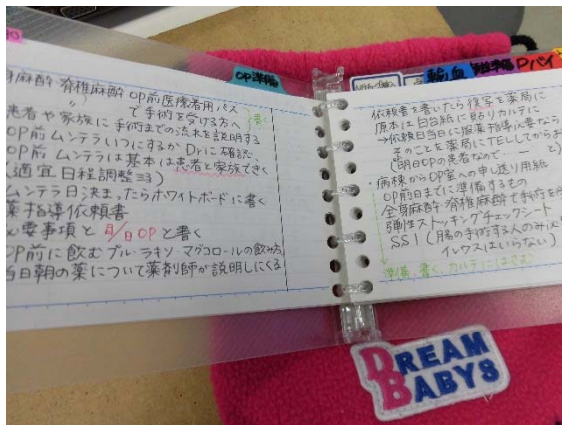 OP準備
身麻酔・脊椎麻酔 OP前医療者用パス
〃 で手術を受ける方へ
書く
患者や家族に手術までの流れを説明する
OP前ムンテラいつにするかDrに確認
OP前ムンテラは基本は患者と家族できく
適宜日程調整ヨコ)
ムンテラ日決まったらホワイトボードに書く
薬指導依頼書
必要事項と 月/日OP と書く
OP前に飲むプルゼニド・ラキソ・マグコロールの飲み方
当日朝の薬について薬剤師が説明しにくる
輸血
準備
Dバイ
依頼書を書いたら複写を薬局に
原本は白台紙に貼りカルテに
→依頼日当日に服薬指導必要なら
そのことを薬局にTELしてからお
(明日OPの患者なので、ー ーと)
病棟からOP室への申し送り用紙
OP前日までに準備するもの
全身麻酔・脊椎麻酔で手術を
弾性ストッキングチェックシート
SSI(腸の手術する人のみ
イレウスはいらない)
準備、書く、カルテにはさむ
DREAM
BABYS